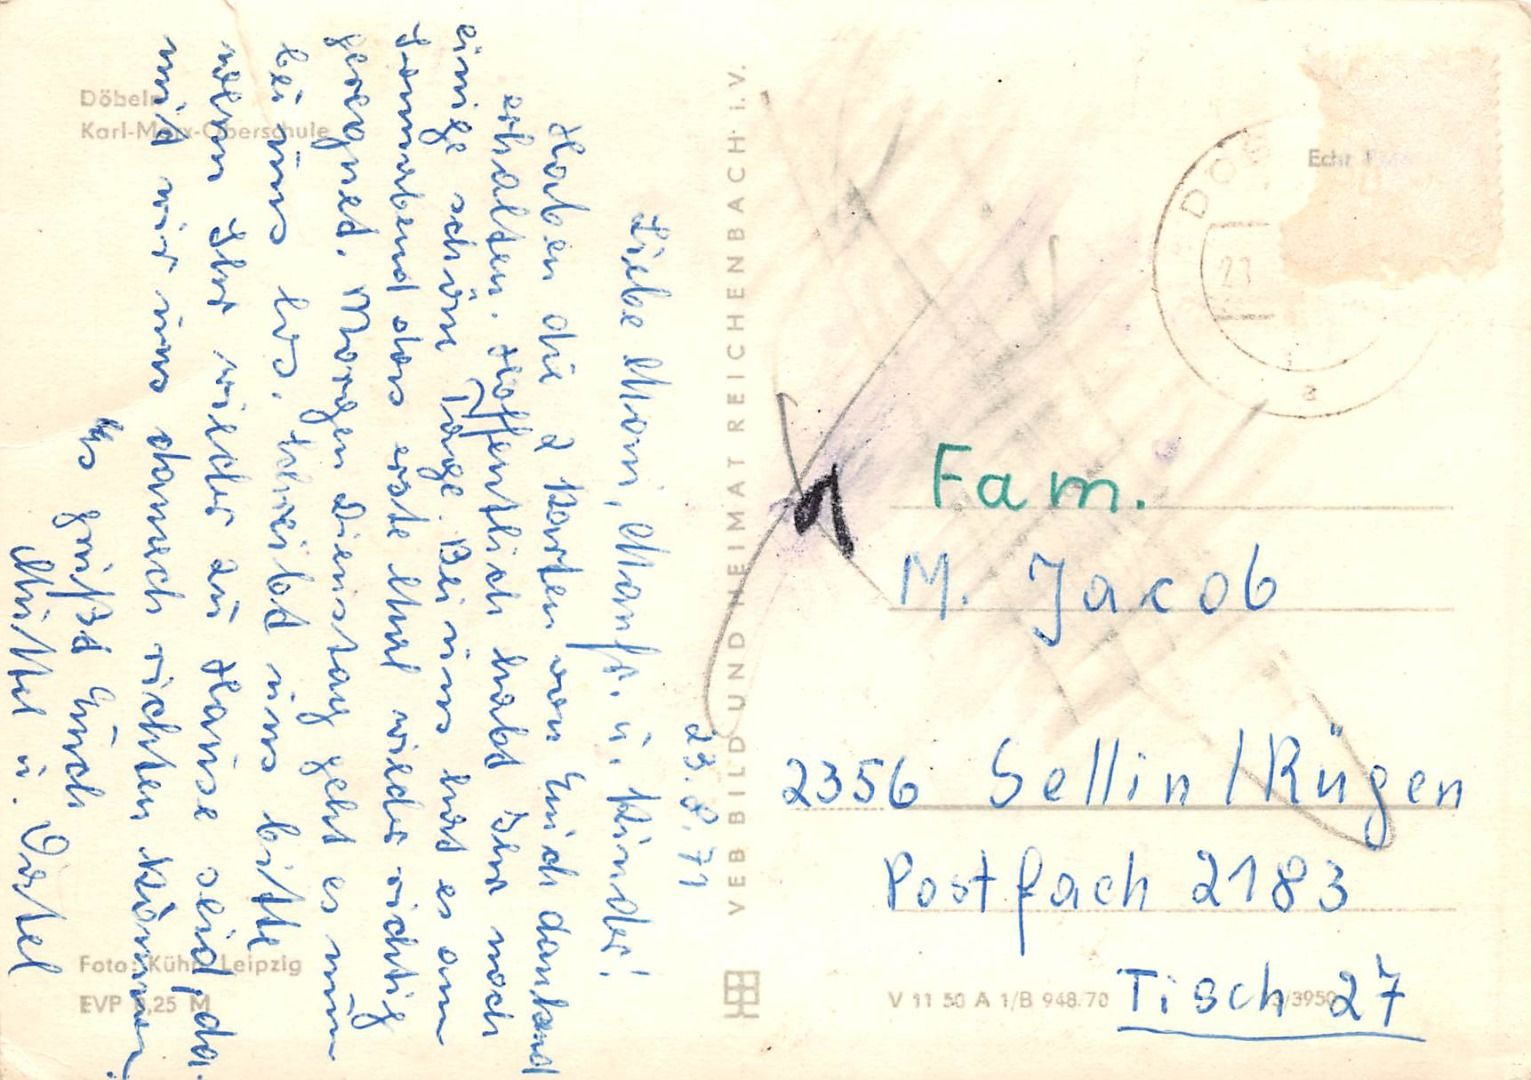 Döbeln
Karl-Marx-Oberschule
23.8.71
Liebe Moni, Manfr. u. Kinder!
Haben die 2 Karten von Euch dankend
erhalten. Hoffentlich habt Ihr noch
einige schöne Tage. Bei uns hat es am
Sonnabend das erste Mal wieder richtig
geregnet. Morgen Dienstag geht es nun
bei uns los. Schreibt uns bitte
wenn Ihr wieder zu Hause seid, da-
mit wir uns danach richten können.
Es grüßt Euch
Mutter u. Vater
Foto: Kühn, Leipzig
EVP 0,25 M
VEB BILD UND HEIMAT REICHENBACH i. V.
V 11 50 A 1/B 948.70
Echt Foto
Fam.
M. Jacob
2356 Sellin/Rügen
Postfach 2183
Tisch 27